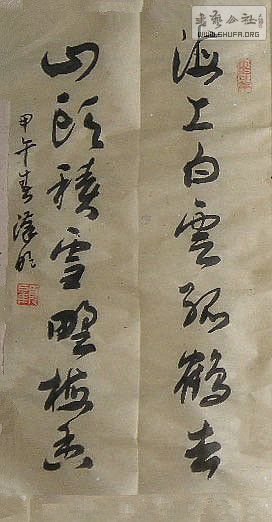 海上白雲孤鶴去
山頭積雪野梅香
甲午春漢明
書藝公社
WWW.SHUFA.ORG